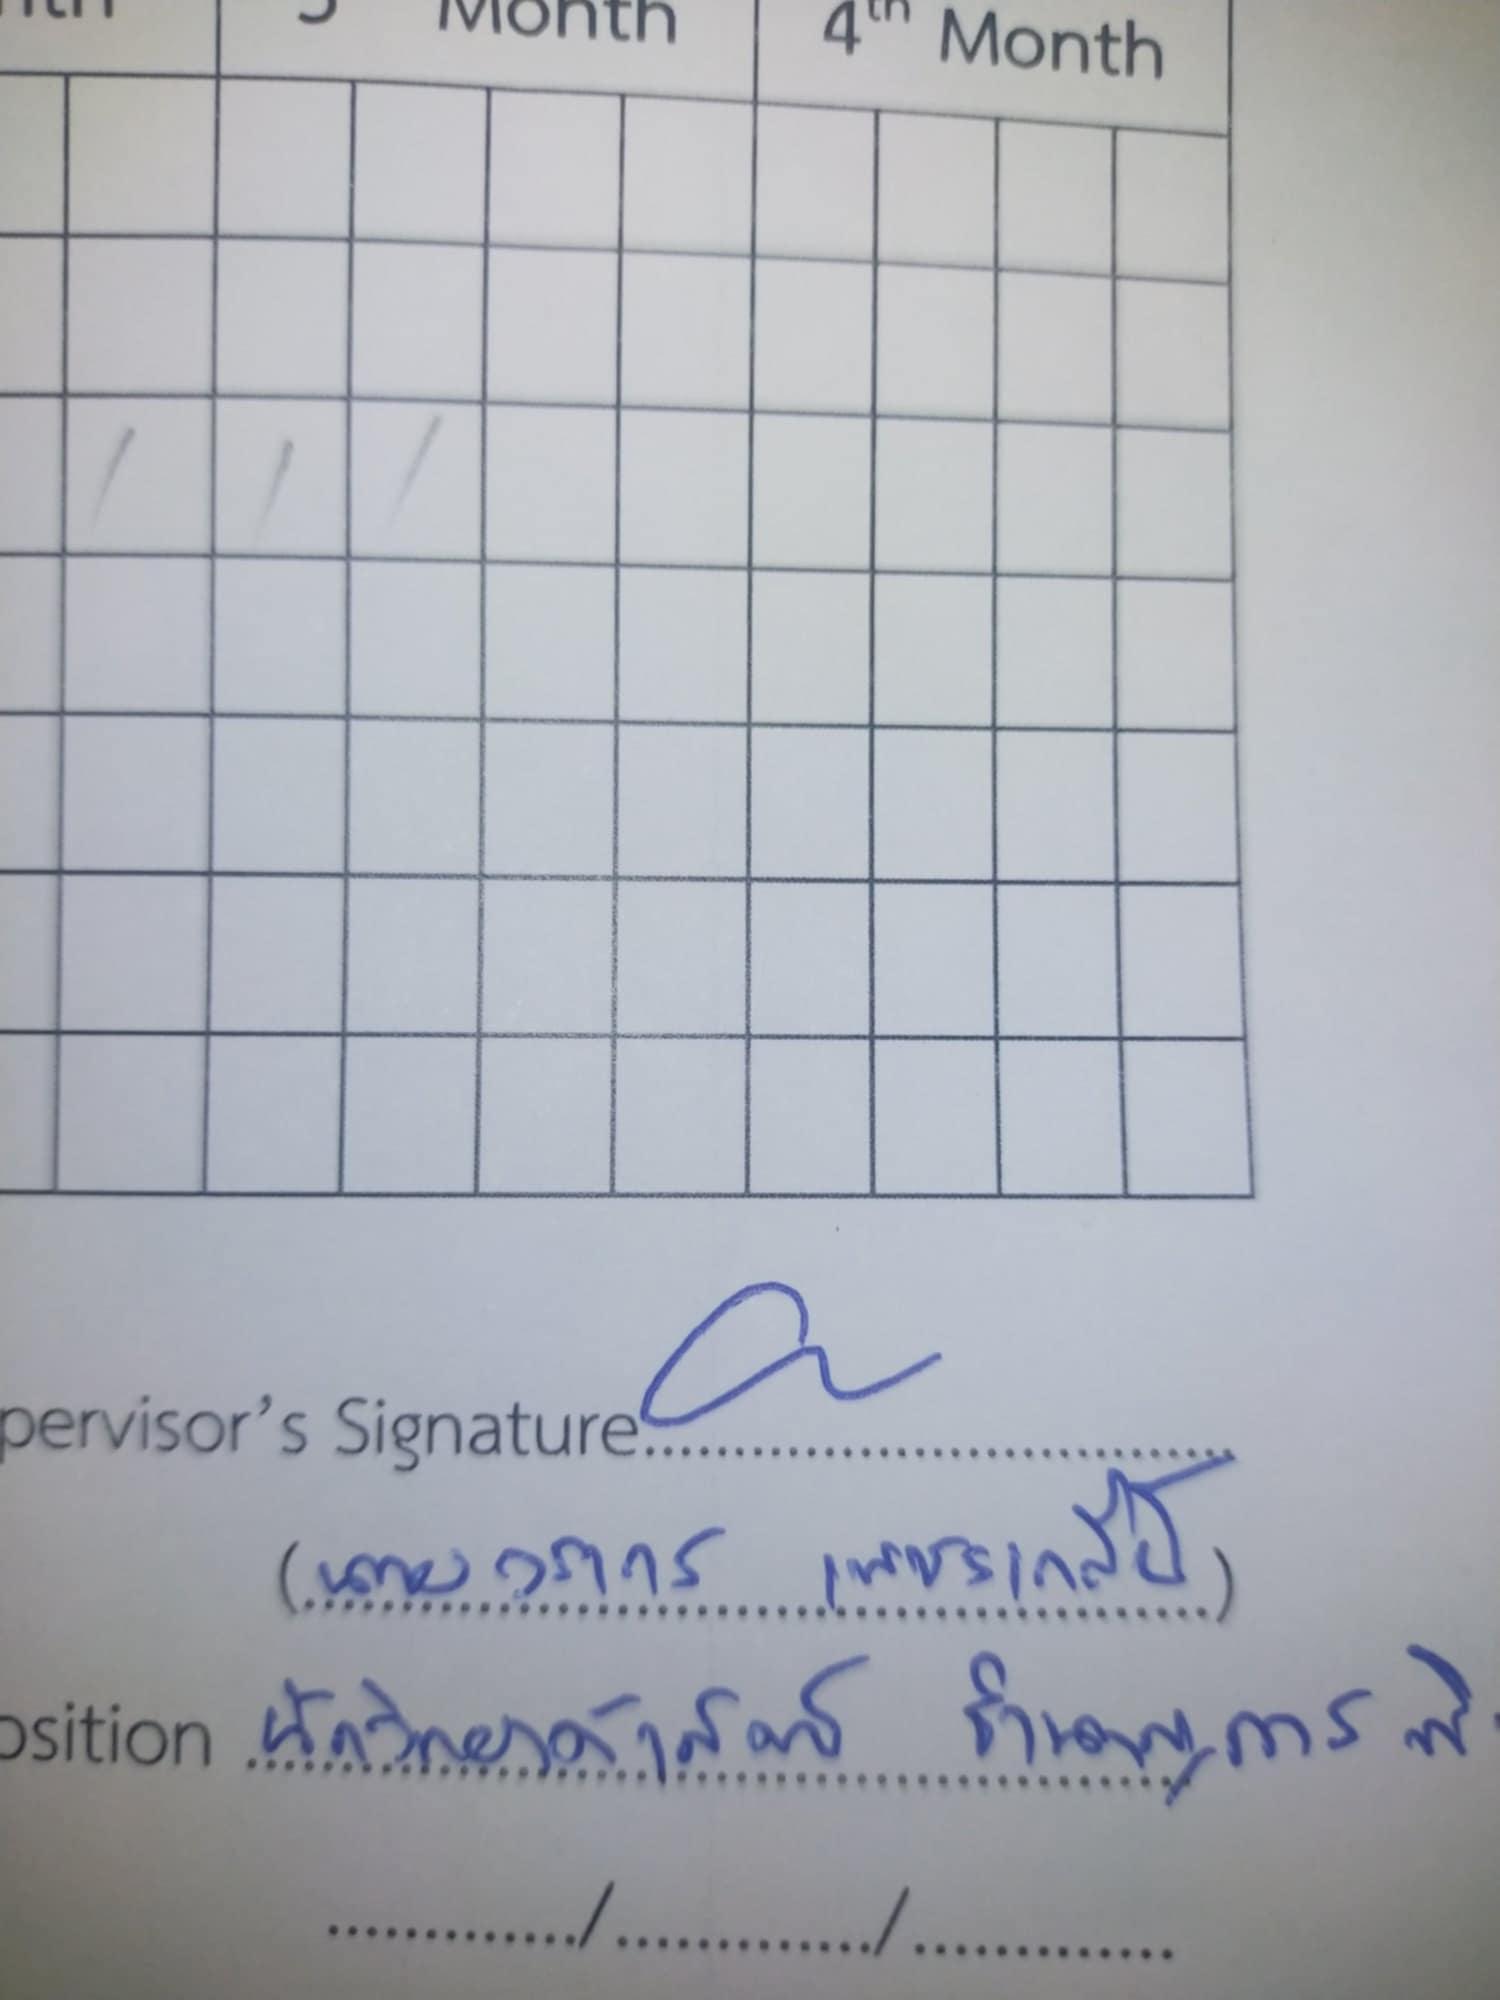 Month 4th Month
pervisor's Signature..............................
(นายวรากร เพชรเกลี้ยง)
osition นักวิทยาศาสตร์ ชำนาญการพิ
............./............./.............